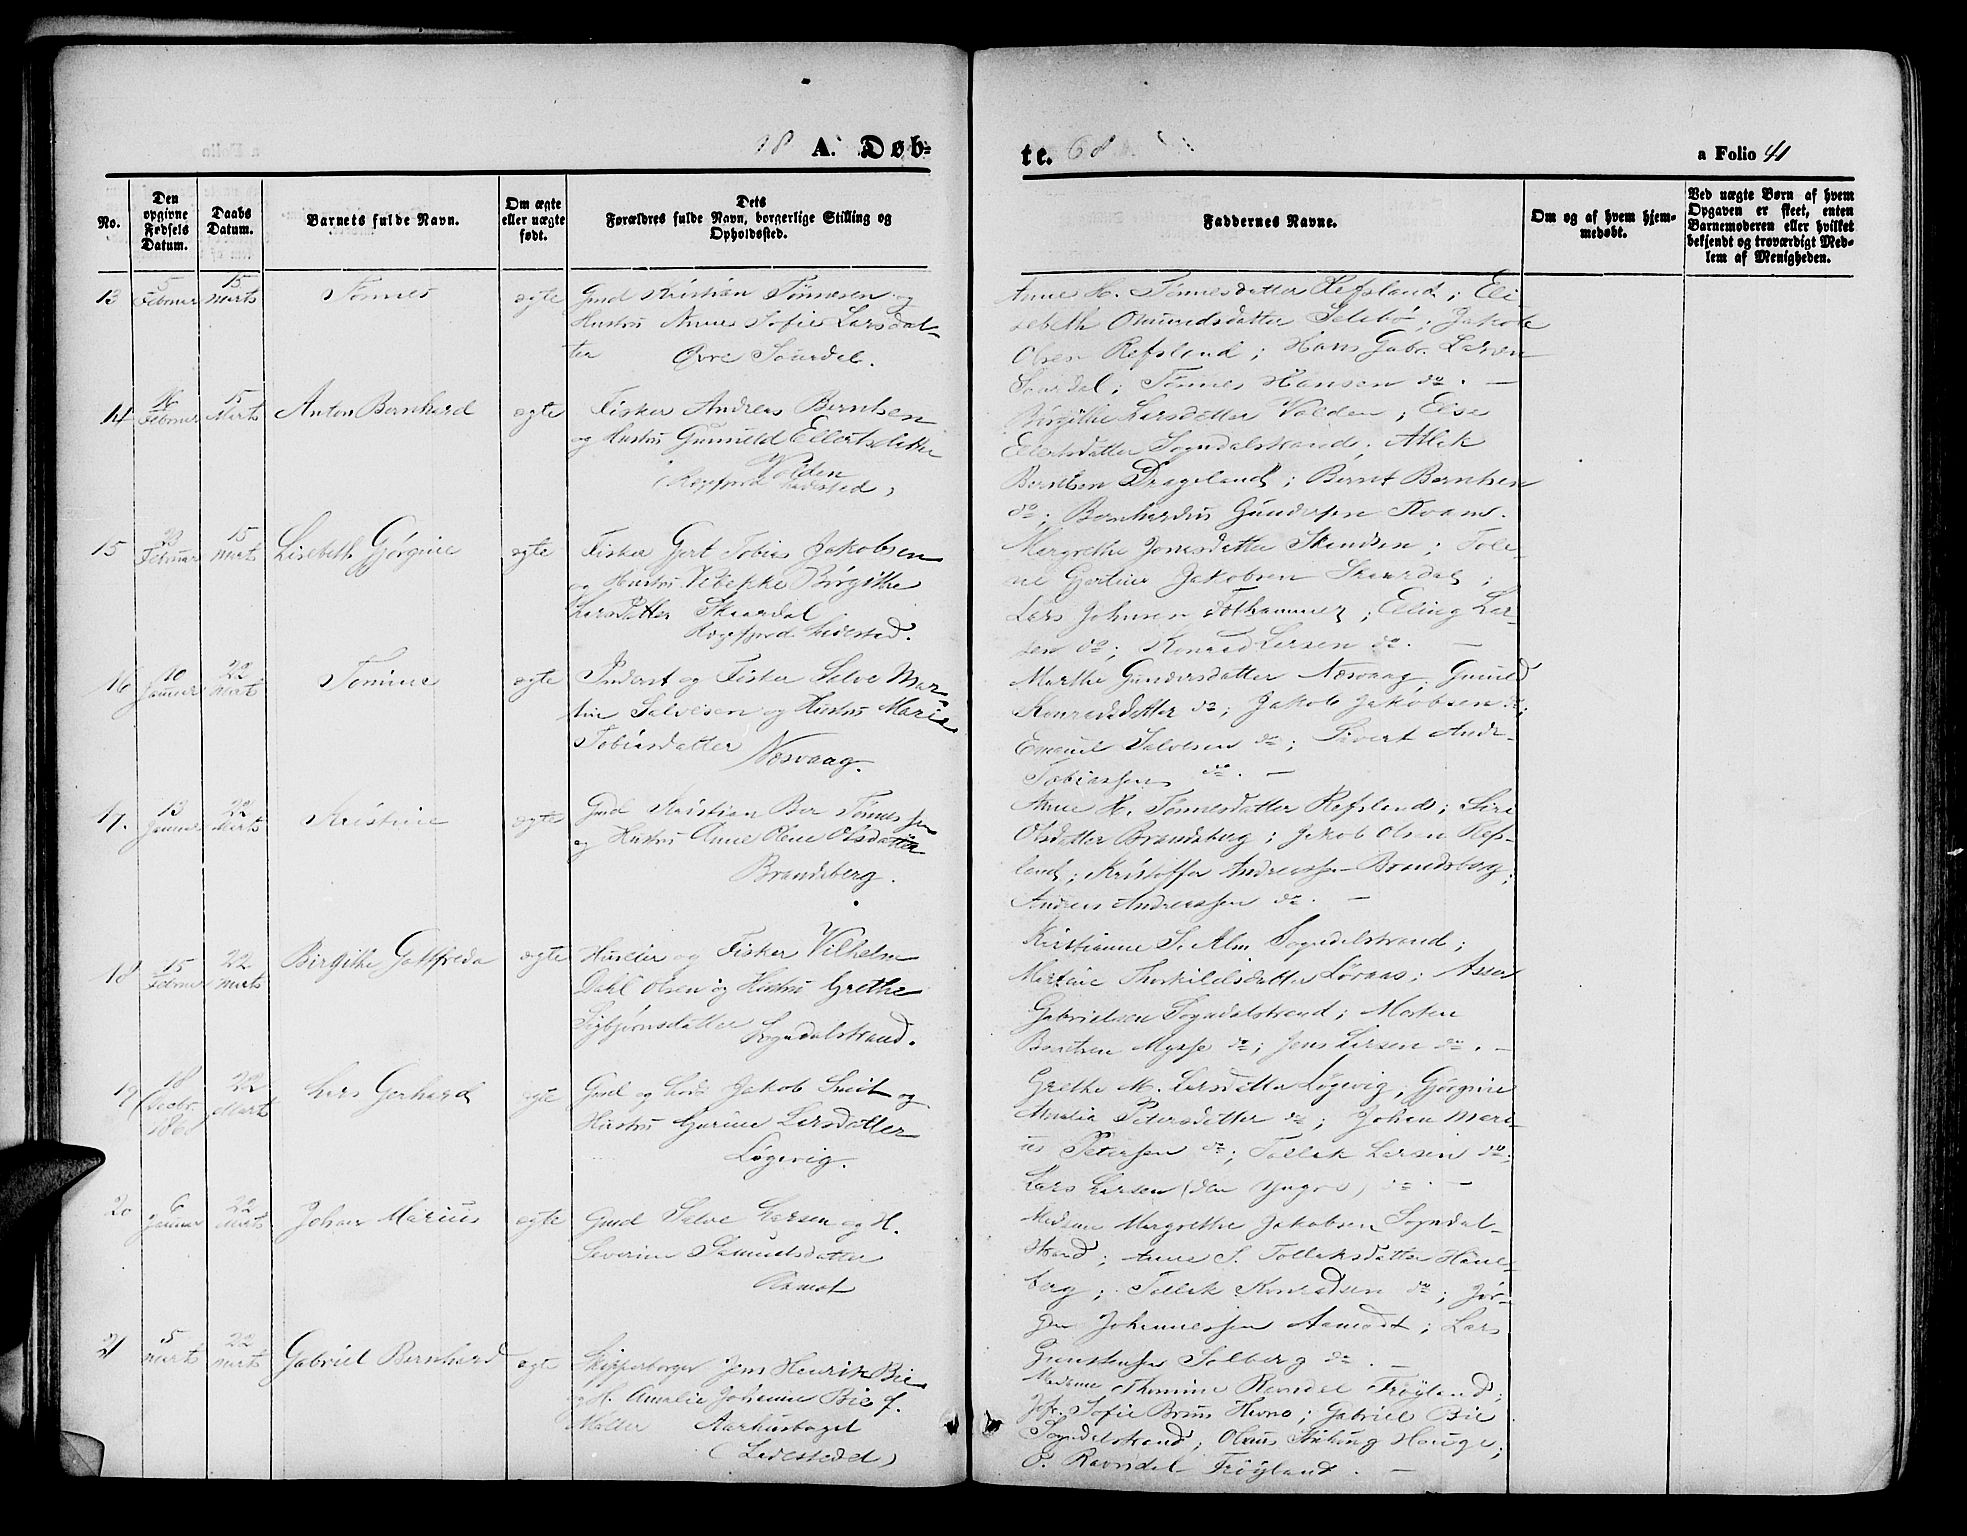 18 A. Døb-
te. 68
a Folio 41
No.
Den opgivne Fødsels Datum.
Daabs Datum.
Barnets fulde Navn.
Om ægte eller uægte født.
Dets Forældres fulde Navn, borgerlige Stilling og Opholdssted.
Faddernes Navne.
Om og af hvem hjemmedøbt.
Ved uægte Børn af hvem Opgaven er skeet, enten Barnemoderen eller hvilket bekjendt og troværdigt Medlem af Menigheden.
13 5 Februar 15 Marts Tønnes ægte
Gmd Kristian Tønnesen og
Hustru Anne Sofie Larsdat-
ter
Anne H. Tønnesdatter Refsland; Eli-
sebeth Omundsdatter; Jakob
Olsen Refsland; Hans Gabr. Larsen
Tønnes Hansen do. —
14 16 Februar 15 Marts Anton Bernhard ægte
Fisker Andreas Berntsen
og Hustru Gunnild Eilertsdatter
Valden
(Rægefjord Ladested)
Birgithe Larsdatter Valden; Else
Eilertsdatter Sogndalstrand; Atlak
Berntsen Drageland; Bernt Berntsen
do; Bernhardus Gundersen Kvam.
15 20 Februar 15 Marts Lisebeth Gjørgine ægte
Fisker Gert Tobias Jakobsen
og Hustru Vibekke Birgithe
Larsdatter Skaardal
Rægefjord Ladested.
Margrethe Jonasdatter; Tole-
ne Gertine Jakobsen Skaardal;
Lars Johnsen; Elling Lar-
sen do; Konrad Larsen do. —
16 10 Januar 22 Marts Tomine ægte
Inderst og Fisker Salve Mar-
tin Salvesen og Hustru Marie
Tobiasdatter Nesvaag.
Marthe Gundersdatter Nesvaag, Gunild
Konradsdatter do; Jakob Jakobsen do;
Emanuel Salvesen do; Sivert Andr.
Tobiassen do. —
17. 13 Januar 22 Marts Kristine ægte
Gmd Kristian Ber Tønnessen
og Hustru Anne Olene Olsdatter
Brandsberg.
Anne H. Tønnesdatter Refsland; Siri
Olsdatter Brandsberg; Jakob Olsen Refs-
land; Kristoffer Andreassen Brandsberg;
Andreas Andreassen do. —
18 15 Februar 22 Marts Birgithe Gottfreda ægte
Husleier og Fisker Vilhelm
Dahl Olsen og Hustru Grethe
Sigbjørnsdatter Sogndalstrand.
Kristianne S. Alm Sogndalstrand;
Martine Thorkildsdatter Løvaas;
Gabrielsen Sogndalstrand; Morten
Berntsen do; Jens Larsen do. —
19 18 Decbr. 22 Marts Lars Gerhard ægte
Gmd og Lods Jakob Smit og
Hustru Gurine Larsdatter
Løgevig.
Grethe M. Larsdatter Løgevig; Gjørgine
Amalia Petersdatter do; Johan Mari-
us Petersen do; Tollak Larsen do;
Lars Larsen (den Yngre) do. —
20 6 Januar 22 Marts Johan Marius ægte
Gmd Salve Larsen og H.
Severine Samuelsdatter
Aamot
Madame Margrethe Jakobsen Sogndal-
strand; Anne S. Tollaksdatter Hane-
berg; Tollak Konradsen do; Jør-
gen Johannessen Aamodt; Lars
Gunstensen Solberg do. —
21 5 Marts 22 Marts Gabriel Bernhard ægte
Skipperborger Jens Henrik Bie
og H. Amalie Johanne Bie f.
Møller Aarhusbaget
(Ladested)
Madame Thomine Ravndal Frøyland;
Jfr. Sofie Bruus; Gabriel Bie
Sogndalstrand; Olaus Hauge;
P. Ravndal Frøyland. —